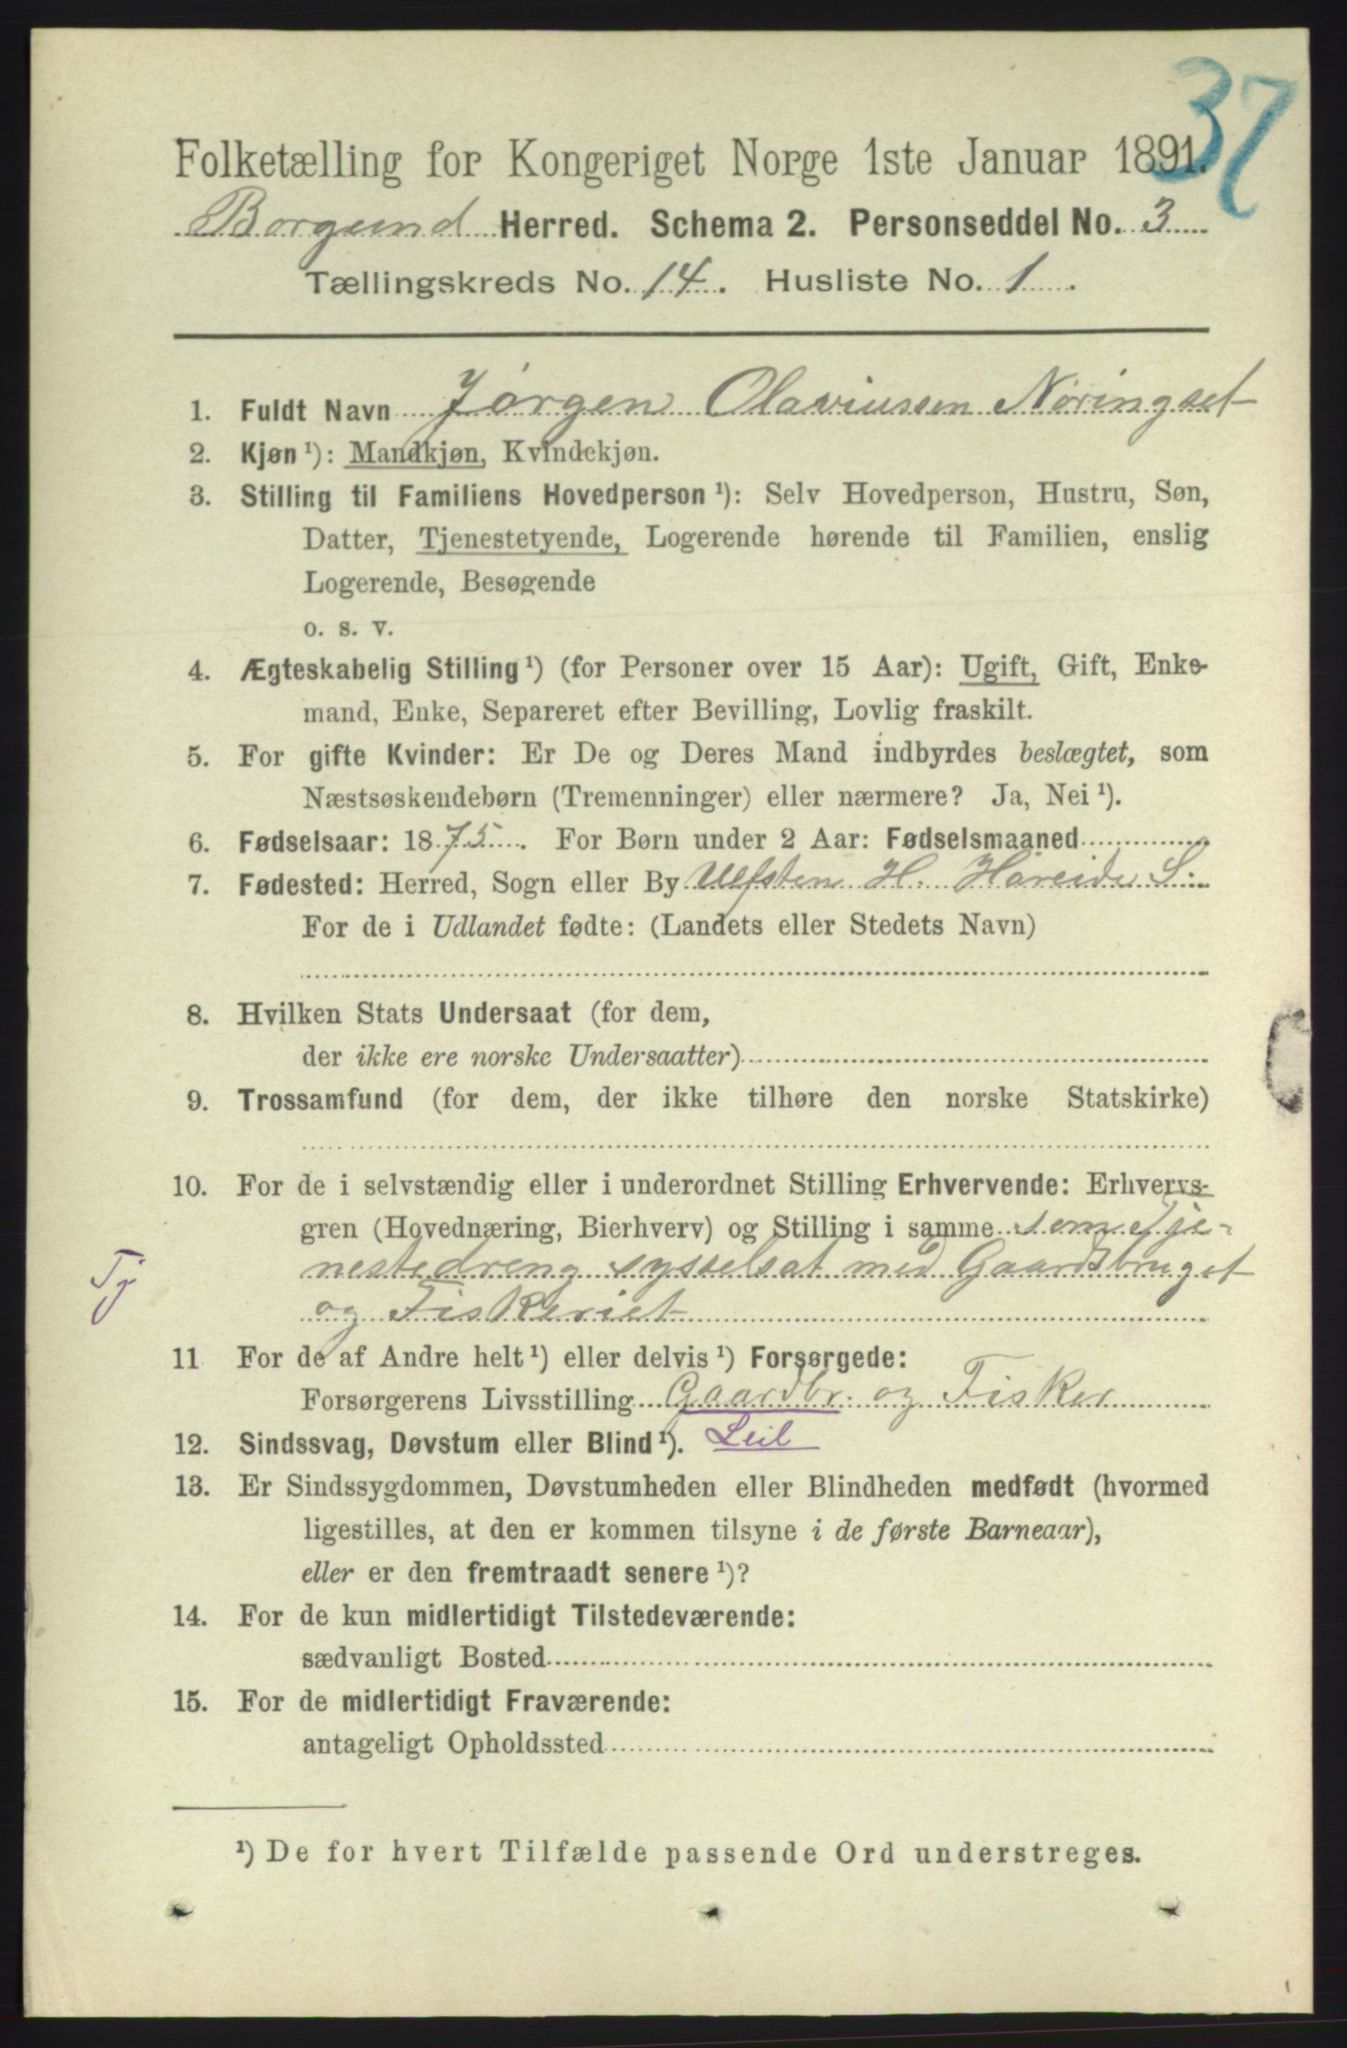 37
Folketælling for Kongeriget Norge 1ste Januar 1891.
Borgund Herred. Schema 2. Personseddel No. 3
Tællingskreds No. 14. Husliste No. 1.
1. Fuldt Navn Jørgen Olaviussen Nøringset
2. Kjøn ¹): Mandkjøn, Kvindekjøn.
3. Stilling til Familiens Hovedperson ¹): Selv Hovedperson, Hustru, Søn,
Datter, Tjenestetyende, Logerende hørende til Familien, enslig
Logerende, Besøgende
o. s. v.
4. Ægteskabelig Stilling ¹) (for Personer over 15 Aar): Ugift, Gift, Enke-
mand, Enke, Separeret efter Bevilling, Lovlig fraskilt.
5. For gifte Kvinder: Er De og Deres Mand indbyrdes beslægtet, som
Næstsøskendebørn (Tremenninger) eller nærmere? Ja, Nei ¹).
6. Fødselsaar: 1875. For Børn under 2 Aar: Fødselsmaaned
7. Fødested: Herred, Sogn eller By Ulfsten H. Hareide S.
For de i Udlandet fødte: (Landets eller Stedets Navn)
8. Hvilken Stats Undersaat (for dem,
der ikke ere norske Undersaatter)
9. Trossamfund (for dem, der ikke tilhøre den norske Statskirke)
10. For de i selvstændig eller i underordnet Stilling Erhvervende: Erhvervs-
gren (Hovednæring, Bierhverv) og Stilling i samme som Tje-
Tj nestedreng sysselsat med Gaardsbruget
og Fiskeriet
11 For de af Andre helt ¹) eller delvis ¹) Forsørgede:
Forsørgerens Livsstilling Gaardbr. og Fisker
12. Sindssvag, Døvstum eller Blind ¹). Leil
13. Er Sindssygdommen, Døvstumheden eller Blindheden medfødt (hvormed
ligestilles, at den er kommen tilsyne i de første Barneaar),
eller er den fremtraadt senere ¹)?
14. For de kun midlertidigt Tilstedeværende:
sædvanligt Bosted
15. For de midlertidigt Fraværende:
antageligt Opholdssted
¹) De for hvert Tilfælde passende Ord understreges.